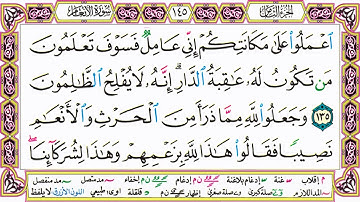 سورة الأنعام ١٤٥ الجزء الثامن
ٱعۡمَلُواْ عَلَىٰ مَكَانَتِكُمۡ إِنِّي عَامِلٞۖ فَسَوۡفَ تَعۡلَمُونَ
مَن تَكُونُ لَهُۥ عَٰقِبَةُ ٱلدَّارِۚ إِنَّهُۥ لَا يُفۡلِحُ ٱلظَّٰلِمُونَ
١٣٥ وَجَعَلُواْ لِلَّهِ مِمَّا ذَرَأَ مِنَ ٱلۡحَرۡثِ وَٱلۡأَنۡعَٰمِ
نَصِيبٗا فَقَالُواْ هَٰذَا لِلَّهِ بِزَعۡمِهِمۡ وَهَٰذَا لِشُرَكَآئِنَاۖ